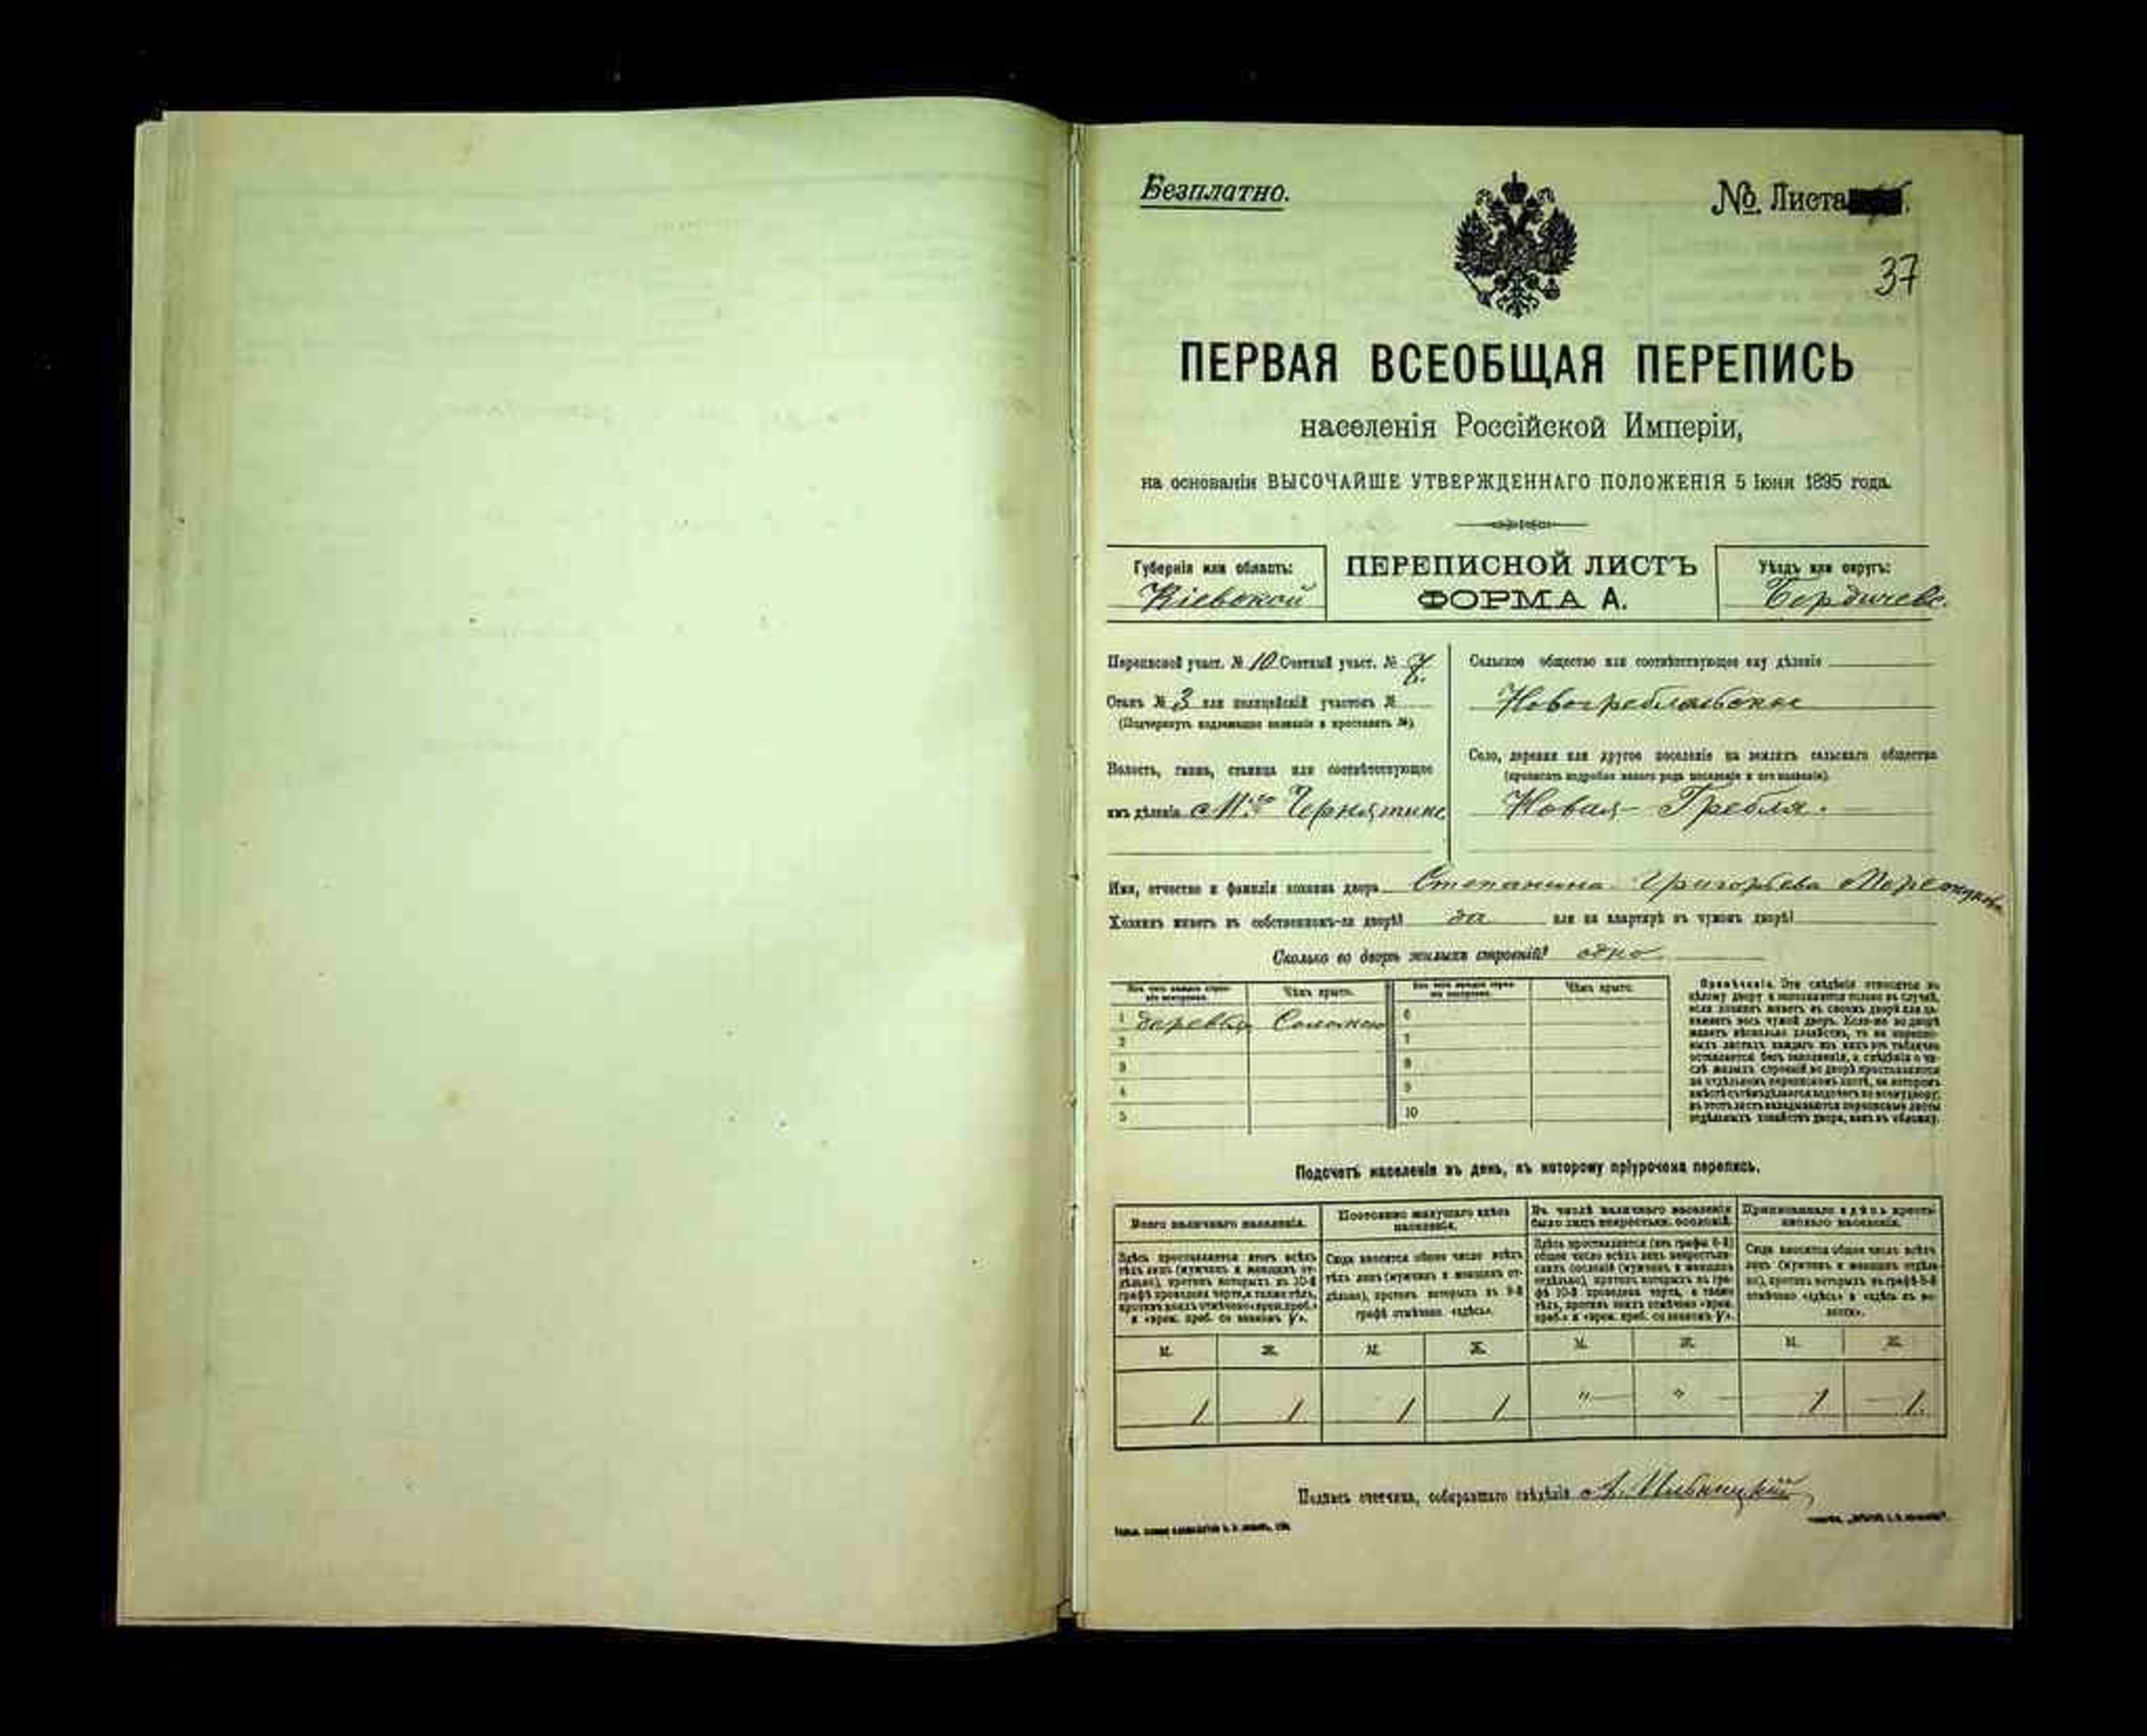 Безплатно.
№ Листа
37
ПЕРВАЯ ВСЕОБЩАЯ ПЕРЕПИСЬ
населенія Россійской Имперіи,
на основаніи ВЫСОЧАЙШЕ УТВЕРЖДЕННАГО ПОЛОЖЕНІЯ 5 Іюня 1895 года.
Губернія или область:
Кіевской
ПЕРЕПИСНОЙ ЛИСТЪ
ФОРМА А.
Уѣздъ или округъ:
Бердичевс.
Переписной участ. № 10 Счетный участ. №
Станъ № 3 или полицейскій участокъ №
(Подчеркнуть надлежащее названіе и проставить №)
Волость, гмина, станица или соотвѣтствующее
имъ дѣленіе Чернятинс
Сельское общество или соотвѣтствующее ему дѣленіе
Новогребельское
Село, деревня или другое поселеніе на земляхъ сельскаго общества
(прописать подробно какого рода поселеніе и его названіе).
Новая-Гребля.
Имя, отчество и фамилія хозяина двора Степанина Григорьева
Хозяинъ живетъ въ собственномъ-ли дворѣ? да или на квартирѣ въ чужомъ дворѣ?
Сколько во дворѣ жилыхъ строеній? одно
Изъ чего каждое строе-
ніе построено.
Чѣмъ крыто.
Изъ чего каждое строе-
ніе построено.
Чѣмъ крыто.
1 дерева Соломою
2
3
4
5
6
7
8
9
10
Примѣчаніе. Эти свѣдѣнія относятся къ
цѣлому двору и заполняются только въ случаѣ,
если хозяинъ живетъ въ своемъ дворѣ или за-
нимаетъ весь чужой дворъ. Если-же во дворѣ
живетъ нѣсколько хозяйствъ, то на перепис-
ныхъ листахъ каждаго изъ нихъ эта табличка
оставляется безъ заполненія, а свѣдѣнія о чи-
слѣ жилыхъ строеній во дворѣ проставляются
на отдѣльномъ переписномъ листѣ, на которомъ
вмѣстѣ съ тѣмъ дѣлается подсчетъ по всему двору;
въ этотъ листъ вкладываются переписные листы
отдѣльныхъ хозяйствъ двора, какъ въ обложку.
Подсчетъ населенія въ день, къ которому пріурочена перепись.
Всего наличнаго населенія.
Постоянно живущаго здѣсь
населенія.
Въ числѣ наличнаго населенія
было лицъ некрестьян. сословій.
Приписаннаго здѣсь кресть-
янскаго населенія.
Здѣсь проставляется итогъ всѣхъ
тѣхъ лицъ (мужчинъ и женщинъ от-
дѣльно), противъ которыхъ въ 10-й
графѣ проведена черта, а также тѣхъ,
противъ коихъ отмѣчено «врем. преб.»
и «врем. преб. со знакомъ V».
Сюда вносится общее число всѣхъ
тѣхъ лицъ (мужчинъ и женщинъ от-
дѣльно), противъ которыхъ въ 9-й
графѣ отмѣчено «здѣсь».
Здѣсь проставляется (изъ графы 6-й)
общее число всѣхъ лицъ некрестьян-
скихъ сословій (мужчинъ и женщинъ
отдѣльно), противъ которыхъ въ гра-
фѣ 10-й проведена черта, а также
тѣхъ, противъ коихъ отмѣчено «врем.
преб.» и «врем. преб. со знакомъ V».
Сюда вносится общее число всѣхъ
лицъ (мужчинъ и женщинъ отдѣль-
но), противъ которыхъ въ графѣ 8-й
отмѣчено «здѣсь» и «здѣсь въ во-
лости».
М. Ж. М. Ж. М. Ж. М. Ж.
1 1 1 1 " " 1 1.
Подпись счетчика, собиравшаго свѣдѣнія